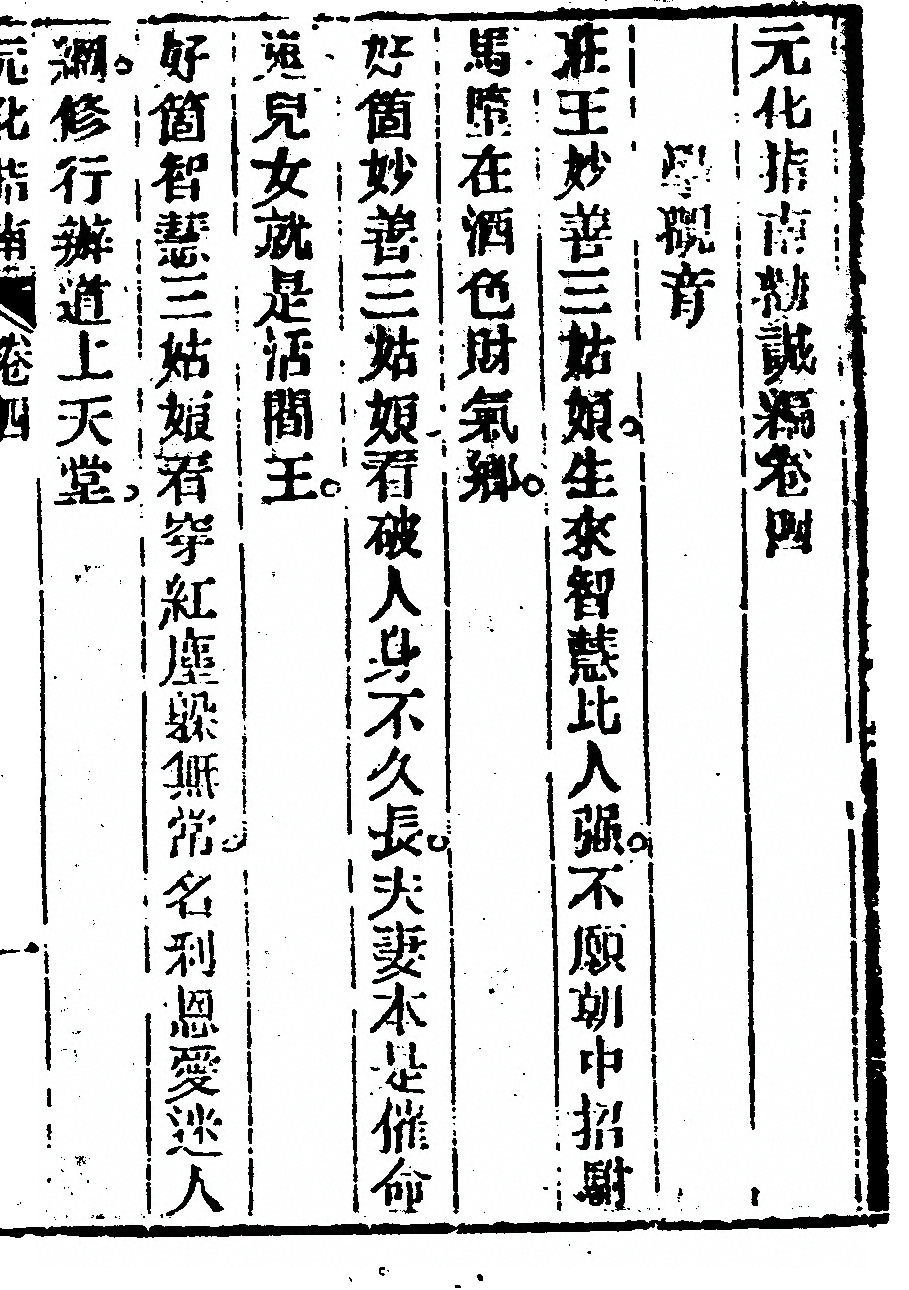 元化指南勅誡編卷四
學觀音
莊王妙善三姑娘。生來智慧比人强。不願朝中招駙
馬墮在酒色財氣鄉。
好箇妙善三姑娘看破人身不久長。夫妻本是催命
鬼兒女就是活閻王。
好箇智慧三姑娘看穿紅塵躱無常。名利恩愛迷人
網。修行辦道上天堂。
元化指南 卷四 一